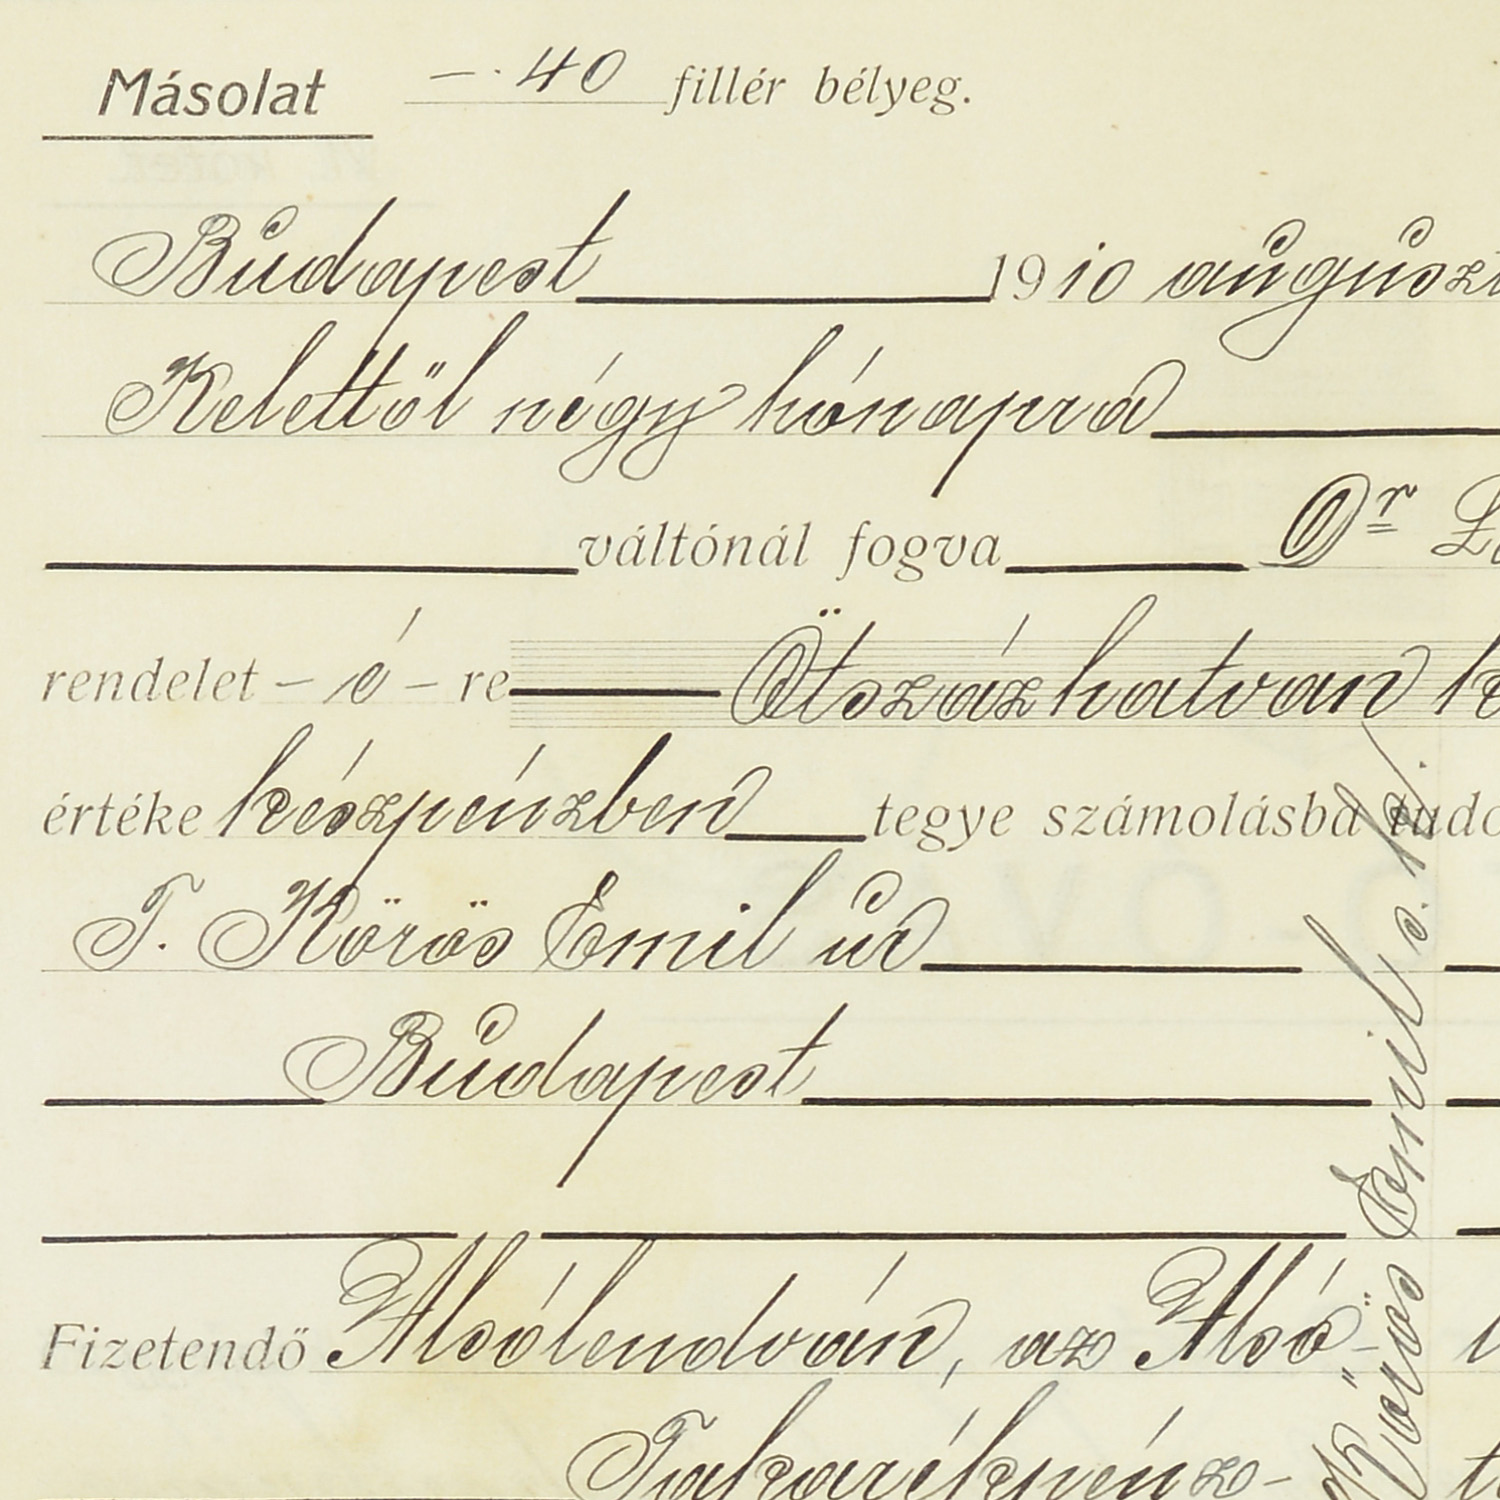 Másolat —. 40 fillér bélyeg.
Budapest 1910
Kelettől négy hónapra
váltónál fogva Dr
rendelet - é - re Ötszázhatvan
értéke készpénzben tegye számolásba
T. Körös Emil úr
Budapest
Fizetendő Alsólendván, az Alsó-
Takarékpénz-
Körös Emil s. k.